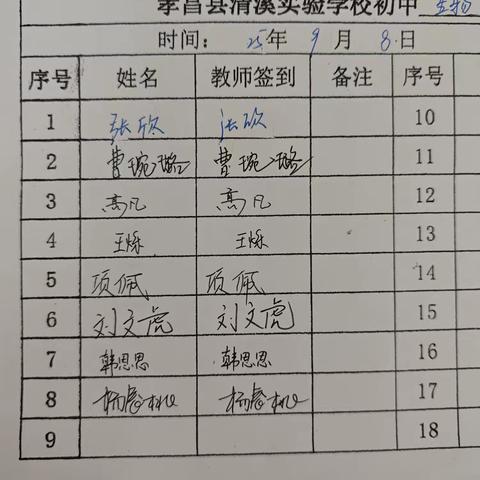 孝昌县清溪实验学校初中 生物
时间: 25年 9月 8日
序号 姓名 教师签到 备注 序号
1 张欣 张欣 10
2 曹琬璐 曹琬璐 11
3 高凡 高凡 12
4 王烁 王烁 13
5 项佩 项佩 14
6 刘文虎 刘文虎 15
7 韩思思 韩思思 16
8 17
9 18